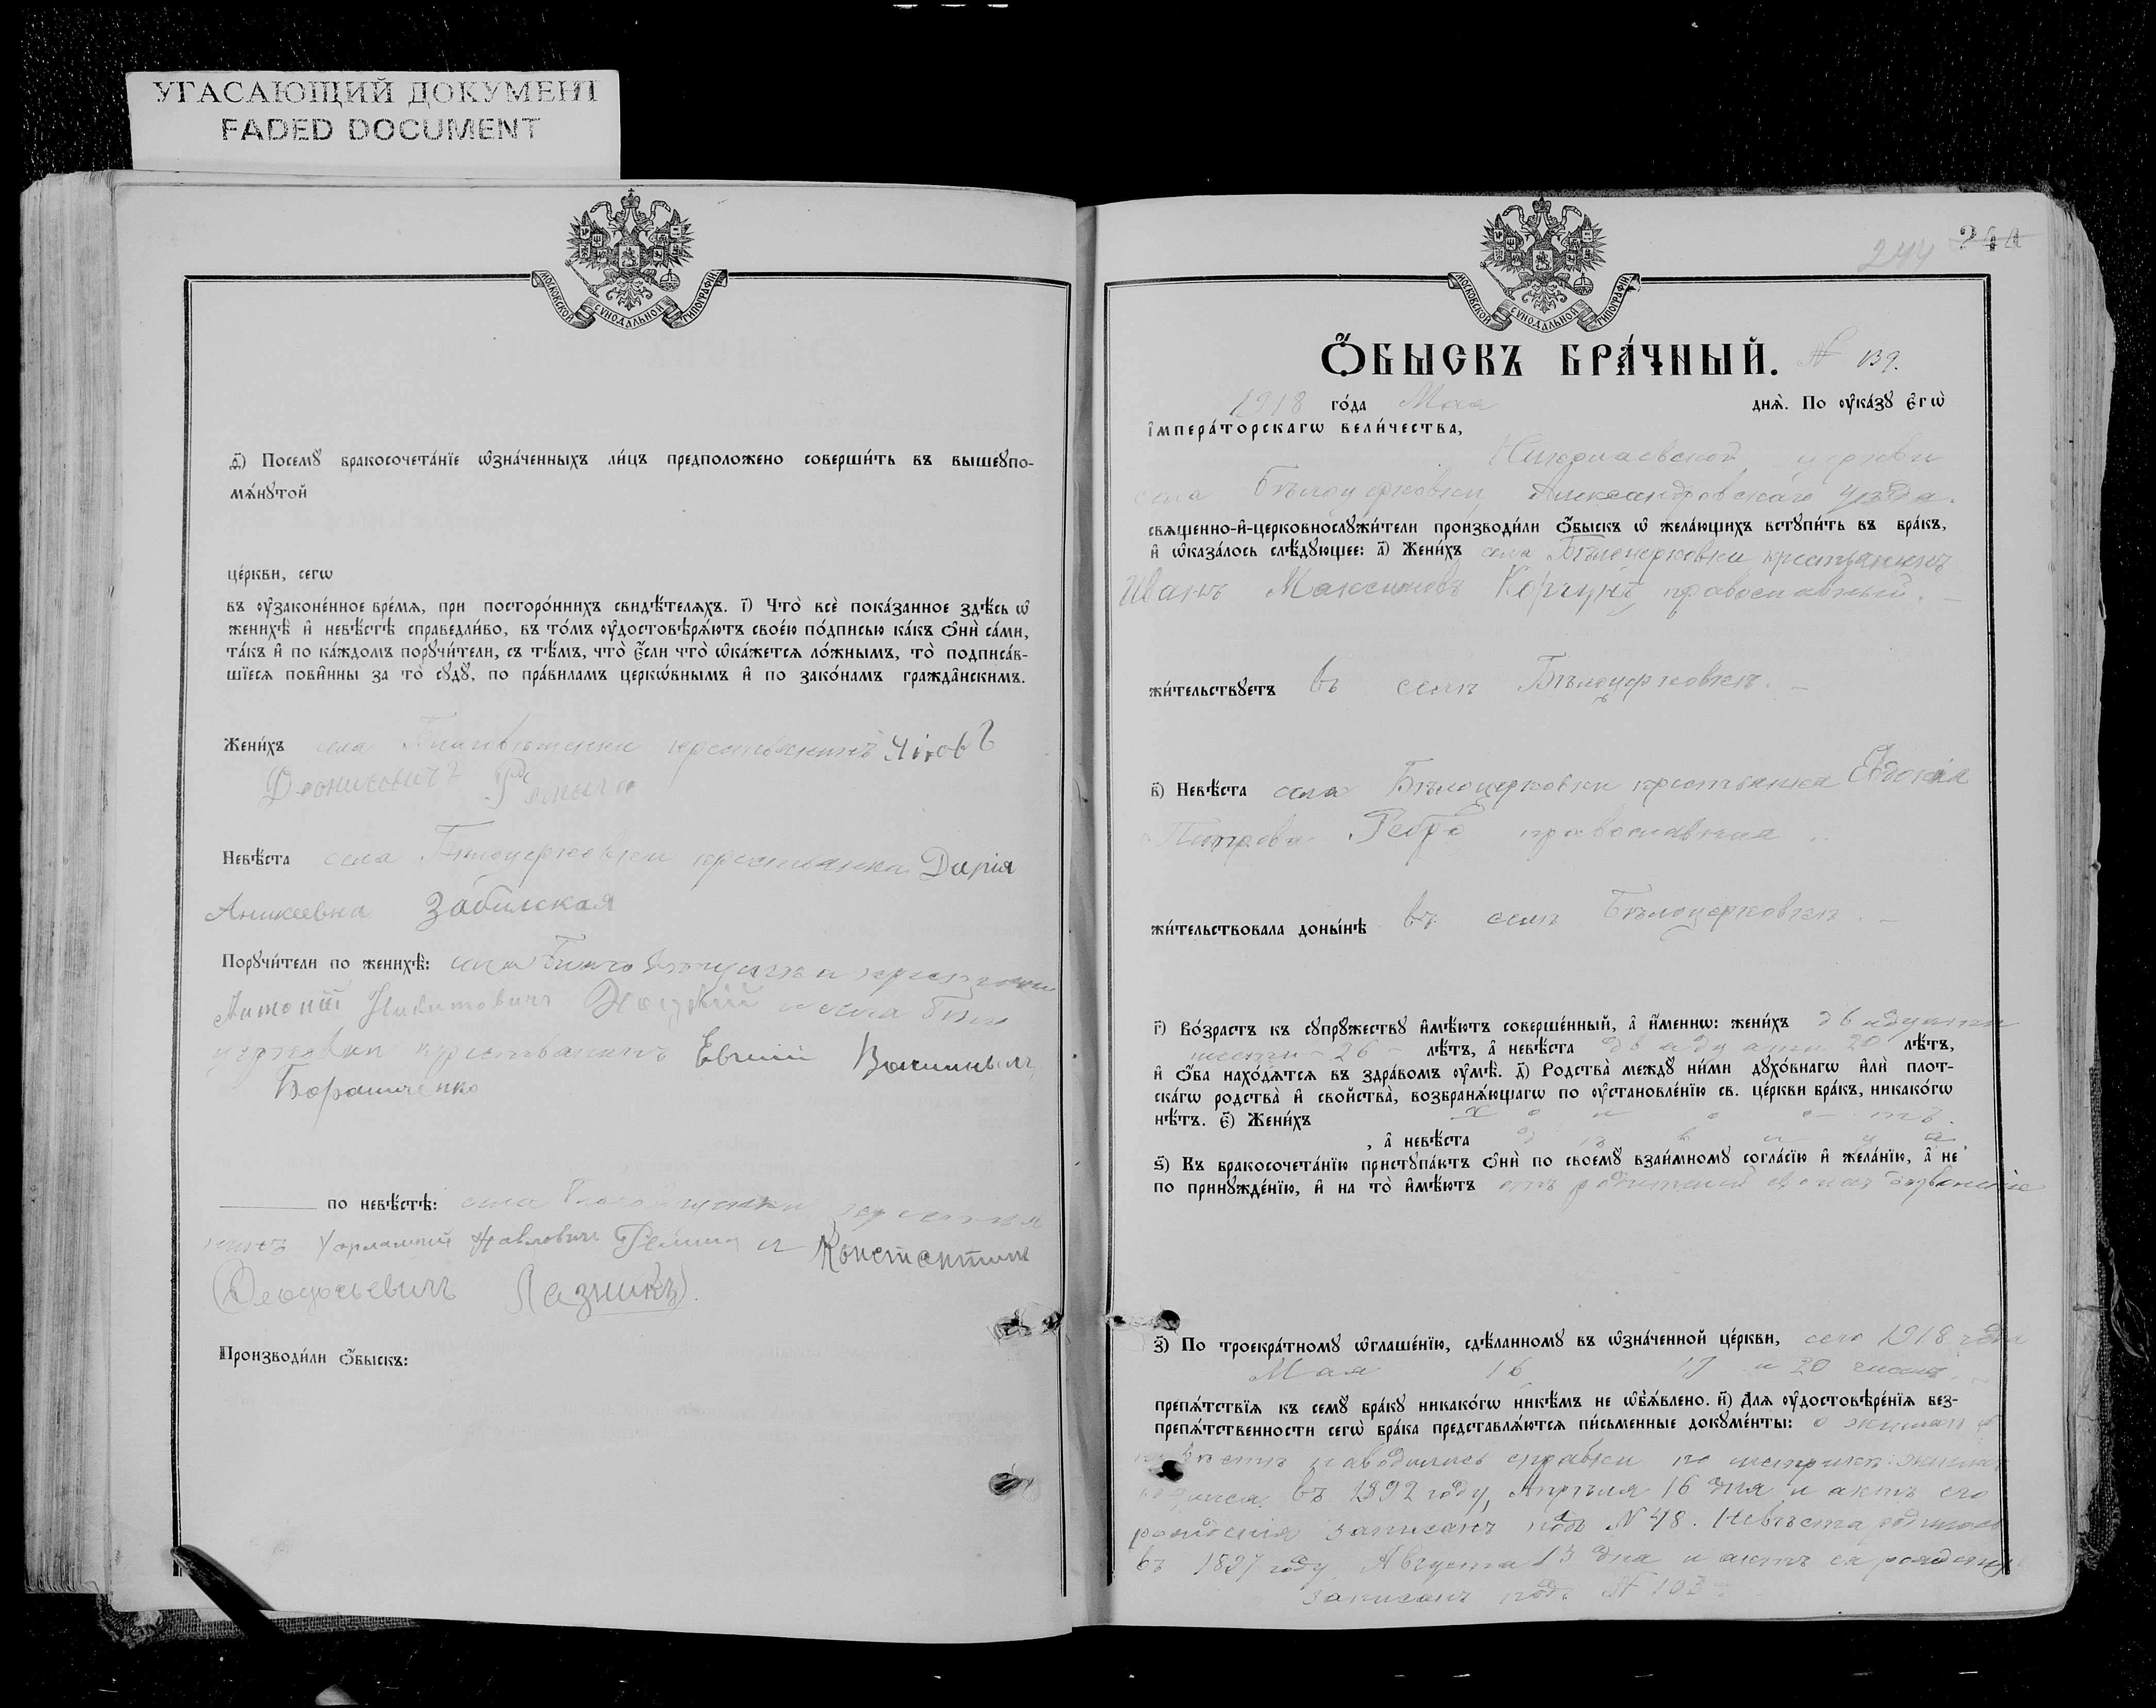 УГАСАЮЩИЙ ДОКУМЕНТ
FADED DOCUMENT
МОСКОВСКОЙ СѴНОДАЛЬНОЙ ТИПОГРАФІИ
ѳ҃) Посемꙋ бракосочета́нїе ѡзна́ченныхъ ли́цъ предположено соверши́ть въ вышеꙋпо-
мѧ́нꙋтой
це́ркви, сегѡ
въ ᲂу҆законе́нное вре́мѧ, при посторо́ннихъ свидѣ́телѧхъ. і҃) Что̀ всѐ пока́занное здѣ́сь ѡ҆
женихѣ̀ и҆ невѣ́стѣ справедли́во, въ то́мъ ᲂу҆достовѣрѧ́ютъ свое́ю по́дписью ка́къ ѻ҆нѝ са́ми,
та́къ и҆ по ка́ждомъ порꙋчи́тели, съ тѣ́мъ, что̀ є҆́сли что̀ ѡ҆ка́жетсѧ ло́жнымъ, то̀ подписа́в-
шїесѧ пови́нны за то̀ сꙋдꙋ̀, по пра́виламъ церкѡ́внымъ и҆ по зако́намъ гражда̑нскимъ.
Жени́хъ села крестьянинъ
Деонисовичъ
Невѣ́ста села Бѣлоцерковки крестьянка Дарія
Аникеевна Забилская
Порꙋчи́тели по женихѣ̀: села
Антоній Никитовичъ и села Бѣло
церковки крестьянинъ Евгений
по невѣ́стѣ: села
Харлампий Павловичъ и Константинъ
Феодосьевичъ Лазникъ
Производи́ли ѻ҆́быскъ:
МОСКОВСКОЙ СѴНОДАЛЬНОЙ ТИПОГРАФІИ
244
Ѻ҆́БЫСКЪ БРА́ЧНЫЙ. № 139.
1918 го́да Мая днѧ̀. По ᲂу҆ка́зꙋ є҆гѡ̀
і҆мпера́торскагѡ вели́чества,
Николаевской церкви
села Бѣлоцерковки, Александровскаго уѣзда.
свѧщенно-и҆-церковнослꙋжи́тели производи́ли ѻ҆́быскъ ѡ҆ жела́ющихъ встꙋпи́ть въ бра́къ,
и҆ ѡ҆каза́лось слѣ́дꙋющее: а҃) Жени́хъ села Бѣлоцерковки крестьянинъ
Иванъ Максимовъ Коргунъ, православный. –
жи́тельствꙋетъ въ селѣ Бѣлоцерковкѣ. –
в҃) Невѣ́ста села Бѣлоцерковки крестьянка Евдокія
Петрова Ребро православная
жи́тельствовала доны́нѣ въ селѣ Бѣлоцерковкѣ. –
г҃) Во́зрастъ къ сꙋпрꙋ́жествꙋ и҆мѣ́ютъ соверше́нный, а҆ и҆́меннѡ: жени́хъ двадцати
шести – 26 – лѣ́тъ, а҆ невѣ́ста двадцати 20 лѣ́тъ,
и҆ ѻ҆́ба нахо́дѧтсѧ въ здра́вомъ ᲂу҆мѣ̀. д҃) Родства̀ междꙋ ни́ми дꙋхо́внагѡ и҆лѝ плот-
ска́гѡ родства̀ и҆ сво́йства̀, возбранѧ́ющагѡ по ᲂу҆становле́нїю св. це́ркви бра́къ, никако́гѡ
нѣ́тъ. є҃) Жени́хъ холостъ.
, а҆ невѣ́ста дѣвица.
ѕ҃) Къ бракосочета́нїю пристꙋпа́ютъ ѻ҆нѝ по своемꙋ̀ взаи́мномꙋ согла́сїю и҆ жела́нїю, а҆ не
по принꙋжде́нїю, и҆ на то̀ и҆мѣ́ютъ отъ родителей своихъ дозволеніе
з҃) По троекра́тномꙋ ѡ҆глаше́нїю, сдѣ́ланномꙋ въ ѡ҆зна́ченной це́ркви, сего 1918 года
Мая 16, 17 и 20 чиселъ,
препѧ́тствїѧ къ семꙋ̀ бра́кꙋ никако́гѡ никѣ́мъ не ѡ҆б̾ѧ́влено. и҃) Длѧ ᲂу҆достовѣре́нїѧ без-
препѧ́тственности сегѡ̀ бра́ка представлѧ́ютсѧ пи́сьменные докꙋме́нты: о женихѣ и
невѣстѣ наводились справки по метрикѣ: женихъ
родился въ 1892 году, Апрѣля 16 дня и актъ его
рожденія записанъ подъ № 48. Невѣста родилась
въ 1897 году, Августа 13 дня и актъ ея рожденія
записанъ подъ № 103